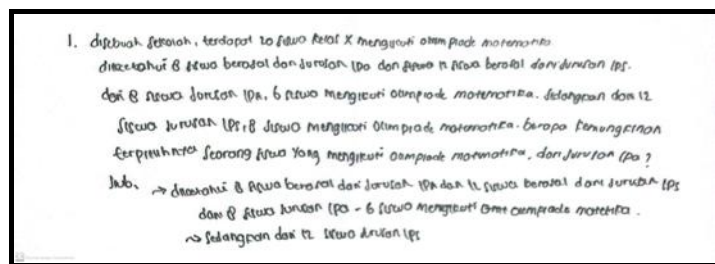 1. disebuah sekolah, terdapat 20 siswa kelas X mengikuti olimpiade matematika
diketahui 8 siswa berasal dari jurusan IPA dan siswa berasal dari jurusan IPS.
dari 8 siswa jurusan IPA, 6 siswa mengikuti olimpiade matematika. sedangkan dari 12
siswa jurusan IPS, 8 siswa mengikuti olimpiade matematika. berapa kemungkinan
terpilihnya seorang siswa yang mengikuti olimpiade matematika, dari jurusan IPA ?
Jwb. → diketahui 8 siswa berasal dari jurusan IPA dan 12 siswa berasal dari jurusan IPS
dari 8 siswa jurusan IPA - 6 siswa mengikuti matematika.
→ sedangkan dari 12 siswa jurusan IPS